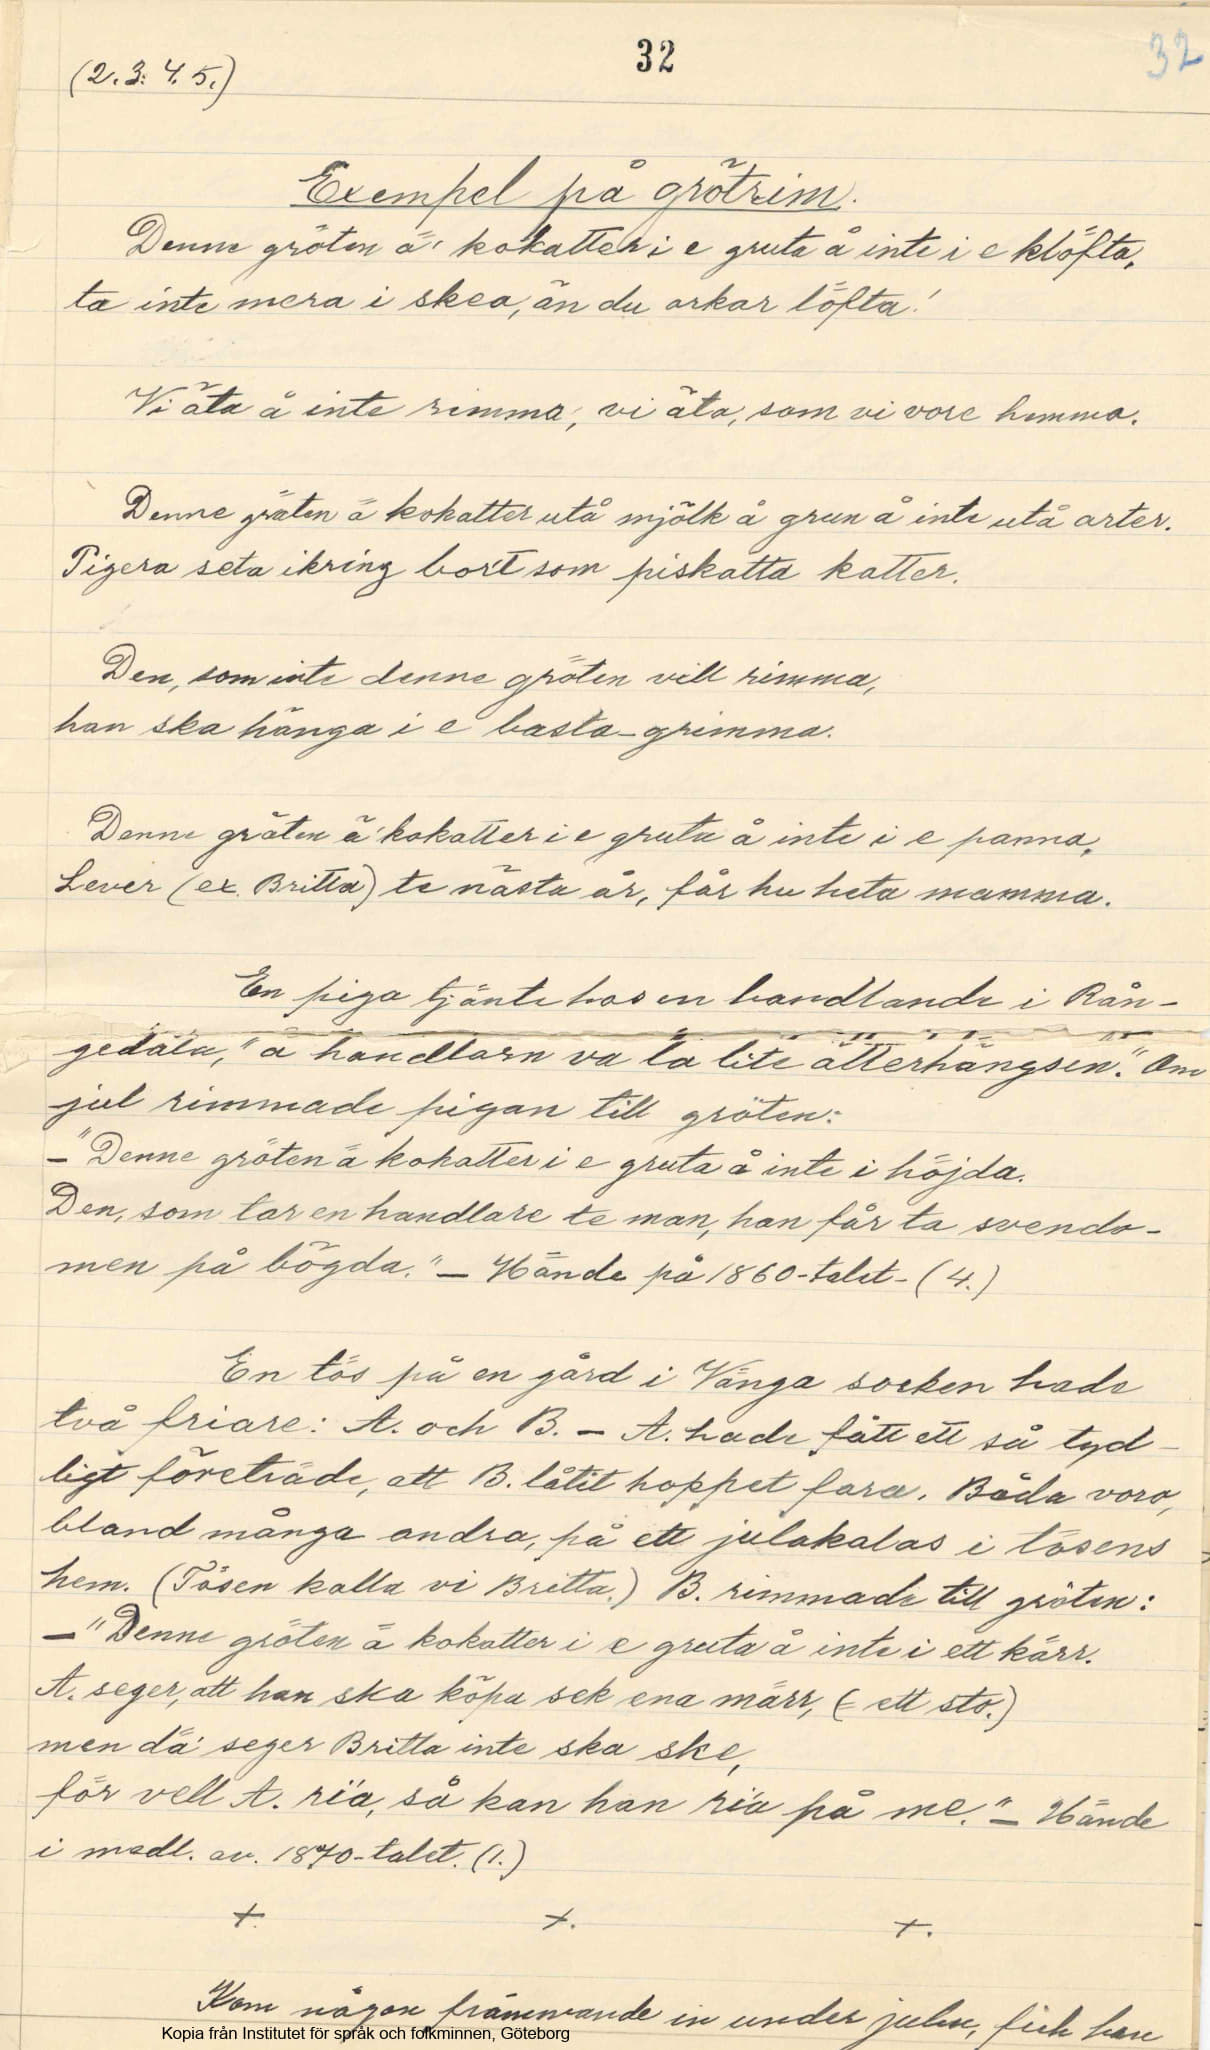 32
32
(2. 3. 4. 5.)
Exempel på grötrim.
Denne gröten ä' kokatter i e gruta å inte i e klöfta,
ta inte mera i skea, än du orkar löfta!
Vi äta å inte rimma, vi äta, som vi vore hemma.
Denne gröten ä kokatter utå mjölk å grun å inte utå arter.
Pigera seta ikring bort som piskatta katter.
Den, som inte denne gröten vill rimma,
han ska hänga i e basta-grimma.
Denne gröten ä' kokatter i e gruta å inte i e panna,
Lever (ex. Britta) te nästa år, får hu heta mamma.
En piga tjänte hos en handlande i Rån-
gedala, "å handlarn va la lite ätterhängsen." Om
jul rimmade pigan till gröten:
– "Denne gröten ä kokatter i e gruta å inte i höjda.
Den, som tar en handlare te man, han får ta svendo-
men på bögda." – Hände på 1860-talet – (4.)
En tös på en gård i Vånga socken hade
två friare: A. och B. – A. hade fått ett så tyd-
ligt företräde, att B. låtit hoppet fara. Båda voro,
bland många andra, på ett julakalas i tösens
hem. (Tösen kalla vi Britta.) B. rimmade till gröten:
– "Denne gröten ä kokatter i e gruta å inte i ett kärr.
A. seger, att han ska köpa sek ena märr, (= ett sto.)
men dä' seger Britta inte ska ske,
för vell A. ri'a, så kan han ri'a på me." – Hände
i medl. av. 1870-talet. (1.)
+. +. +.
Kom någon främmande in under julen, fick han
Kopia från Institutet för språk och folkminnen, Göteborg